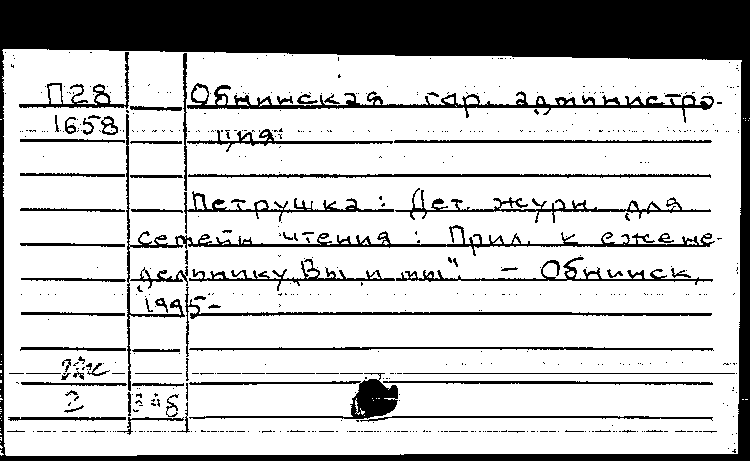 П28
1658
Обнинская гор. администра-
ция
Петрушка : Дет. журн. для
семейн. чтения : Прил. к ежене-
дельнику „Вы и мы“. — Обнинск,
1995-
2